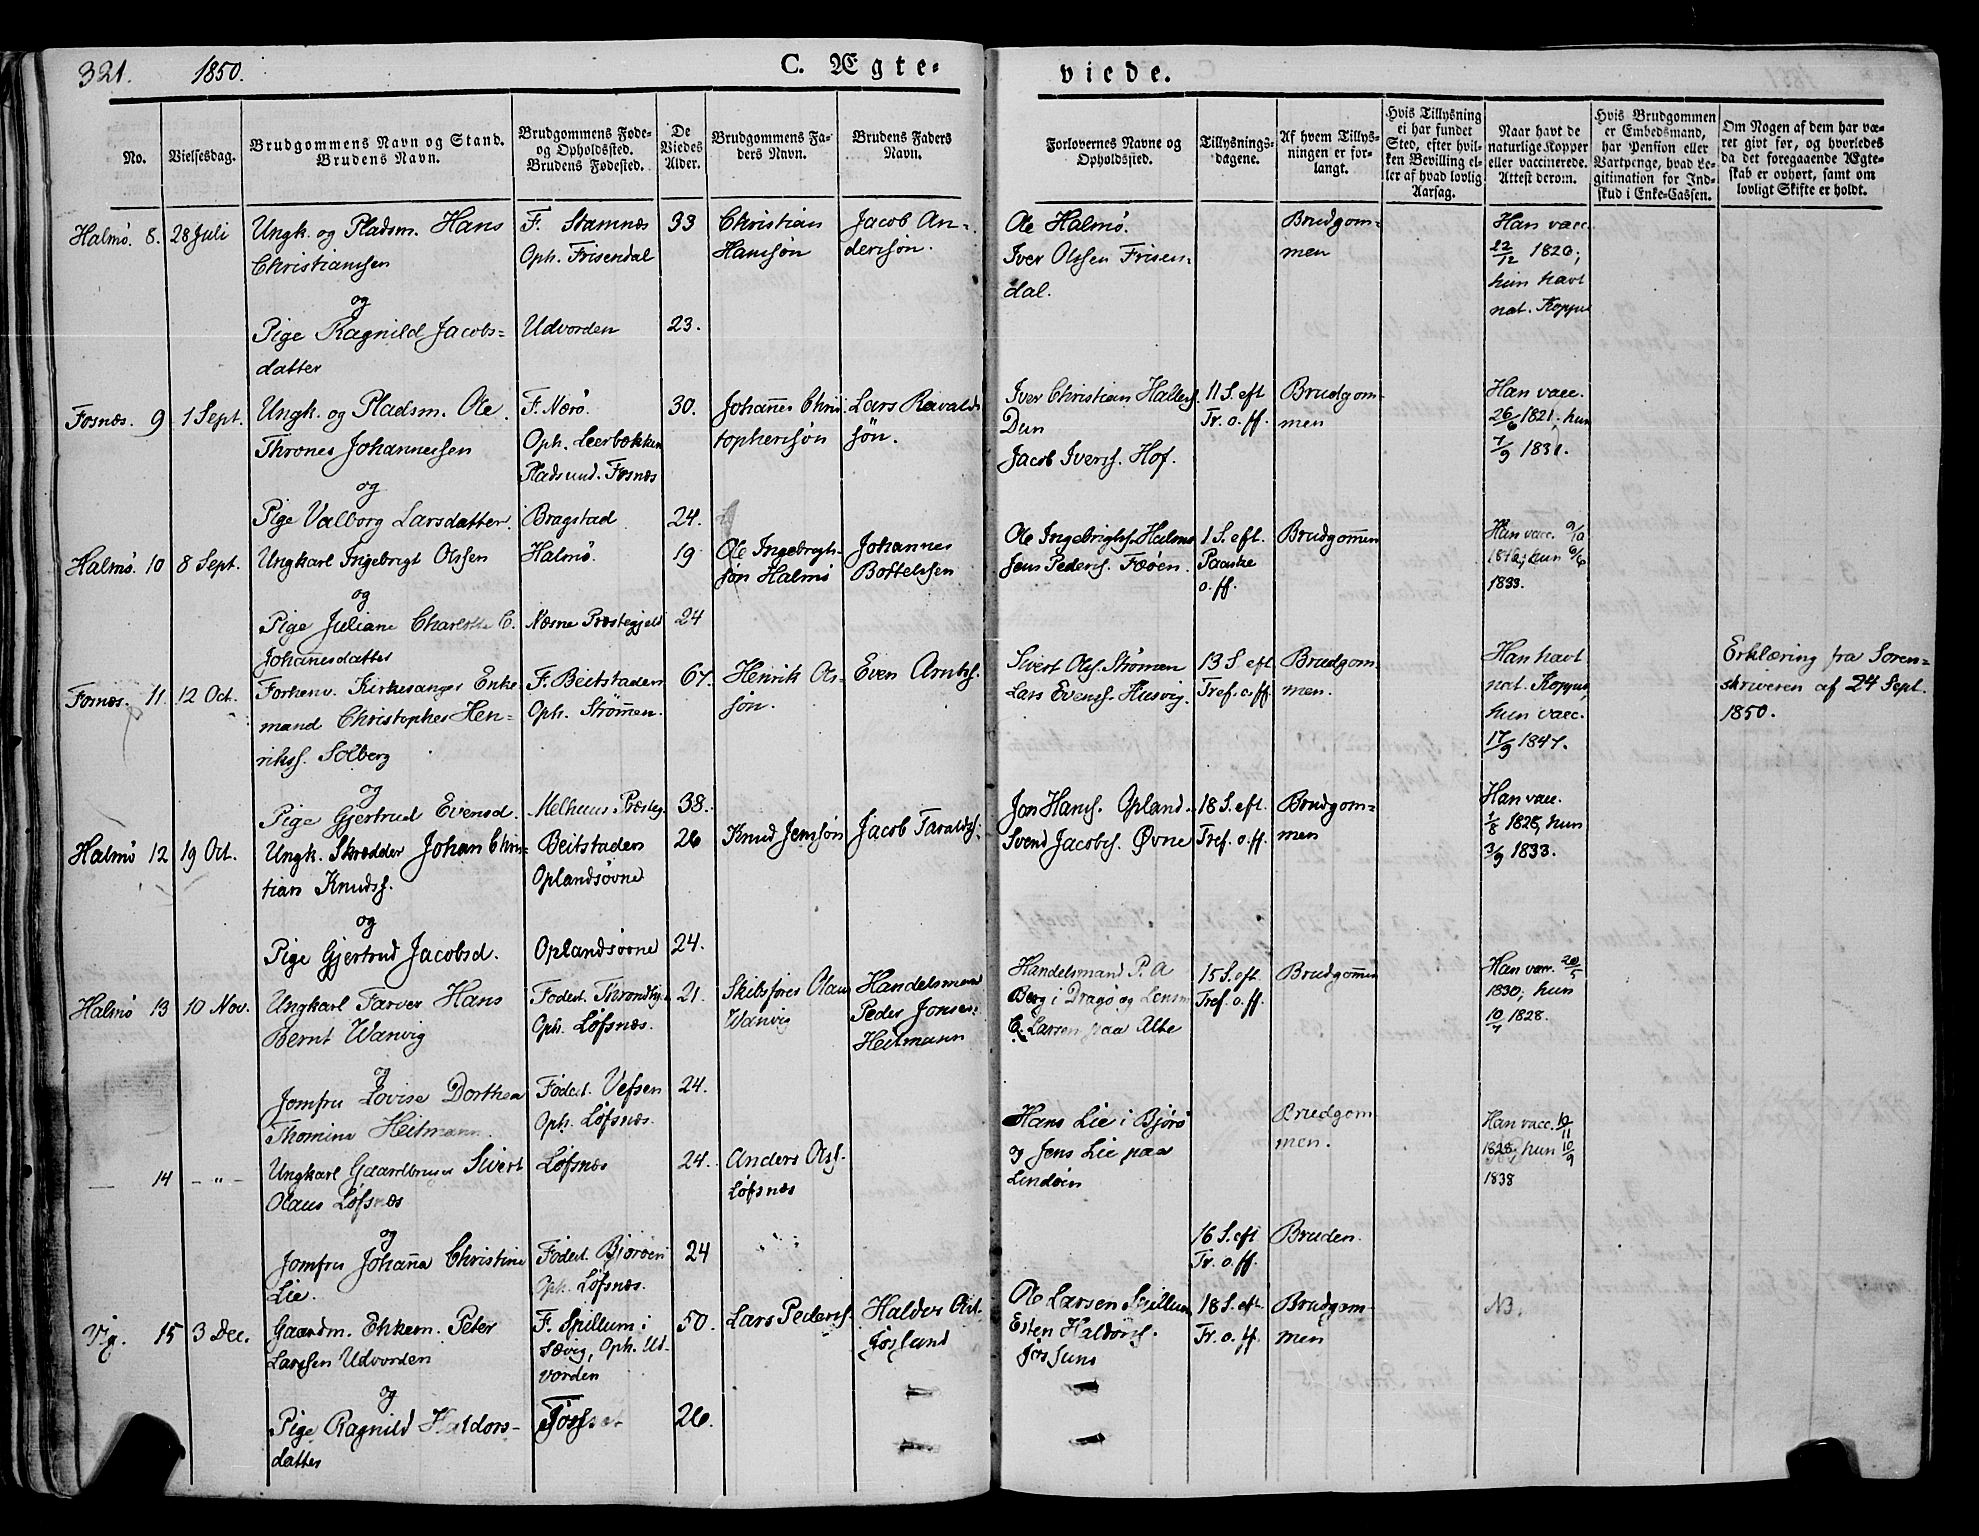 321. 1850. C. Ægte-
viede.
No.
Vielsesdag.
Brudgommens Navn og Stand.
Brudens Navn.
Brudgommens Føde-
og Opholdssted.
Brudens Fødested.
De
Viedes
Alder.
Brudgommens Fa-
ders Navn.
Brudens Faders
Navn.
Forlovernes Navne og
Opholdssted.
Tillysnings-
dagene.
Af hvem Tillys-
ningen er for-
langt.
Hvis Tillysning
ei har fundet
Sted, efter hvil-
ken Bevilling el-
ler af hvad lovlig
Aarsag.
Naar havt de
naturlige Kopper
eller vaccinerede.
Attest derom.
Hvis Brudgommen
er Embedsmand,
har Pension eller
Vartpenge, hvad Le-
gitimation for Ind-
skud i Enke-Cassen.
Om Nogen af dem har væ-
ret givt før, og hvorledes
da det foregaaende Ægte-
skab er ophørt, samt om
lovligt Skifte er holdt.
Halmø. 8. 28 Juli
Ungk. og Pladsm. Hans
Christiansen
og
Pige Ragnild Jacobs-
datter
F. Stamnæs
Oph. Frisendal
Udvorden
33
23.
Christian
Hansøn
Jacob An-
dersøn.
Ole Halmø.
Iver Olssen Frisen-
dal.
Brudgom-
men
Han vacc.
22/12 1820;
hun havt
nat. Kopper
Fosnæs. 9 1 Sept.
Ungk. og Pladsm. Ole
Thrones Johannessen
og
Pige Valborg Larsdatter.
F. Nærø.
Oph. Leerbækken
Plads und. Fosnæs
Bragstad
30.
24.
Johannes Chris-
tophersøn
Lars Ravalds-
søn.
Iver Christian Hallers.
Dun
Jacob Ivers. Hof.
11 S. eft
Tr. o. ff.
Brudgom-
men
Han vacc.
26/6 1821; hun
7/9 1831.
Halmø. 10 8 Sept.
Ungkarl Ingebrigt Olssen
og
Pige Juliane Charlotte C.
Johanesdatter
Halmø.
Næsne Præstegjeld
19
24
Ole Ingebrigts-
søn Halmø
Johannes
Bottelssen
Ole Ingebrigtss. Halmø
Jens Peders. Fæøen.
1 S. eft.
Paaske
o. ff.
Brudgommen
Han vacc.
hun
1833.
Fosnæs. 11 12 Oct.
Forhenv. Kirkesanger Enke-
mand Christopher Hen-
rikss. Solberg
og
Pige Gjertrud Evensd.
F. Beitstaden
Oph. Strømen.
Melhuus Præsteg.
67.
38.
Henrik Ols-
søn.
Even Arnts.
Sivert Ols. Strømen
Lars Evens. Husvig.
13 S. eft
Tref. o. ff.
Brudgom-
men.
Han havt
nat. Kopper,
hun vacc.
17/9 1847.
Erklæring fra Soren-
skriveren af 24 Sept.
1850.
Halmø 12 19 Oct.
Ungk. Skrædder Johan Chris-
tian Knuds.
og
Pige Gjertrud Jacobsd.
Beitstaden
Oplandsøvne
Oplandsøvne
26
24.
Knud Jensøn
Jacob Taralds.
Jon Hans. Opland.
Svend Jacobs. Øvne
18 S. eft.
Tref. o. ff.
Brudgom-
men
Han vacc.
1/8 1828, hun
3/9 1833.
Halmø 13 10 Nov.
Ungkarl Farver Hans
Bernt Wanvig
og
Jomfru Lovise Dorthea
Thomina Heitmann.
Fødest. Throndhj.
Oph. Løfsnæs.
Fødest. Vefsen
Oph. Løfsnæs.
21.
24.
Skibsfører Olaus
Wanvig
Handelsmand
Peder Jonsen
Heitmann
Handelsmand P. A
Berg i Dragø og Lensm.
C. Larsen paa Alte
15 S. eft
Tref. o. ff.
Brudgommen
Han vacc. 20/5
1830; hun
10/7 1828.
— 14 - „ -
Ungkarl Gaardbruger Sivert
Olaus Løfsnæs
og
Jomfru Johanna Christine
Lie.
Løfsnæs
Fødest. Bjørøen
Oph. Løfsnæs.
24.
24
Anders Ols.
Løfsnæs
Hans Lie i Bjørø
og Jens Lie paa
Lindøen
Brudgom-
men.
16 S. eft
Tr. o. ff.
Bruden.
Han vacc. 10/11
1828, hun 10/9
1838
Vig. 15 3 Dec.
Gaardm. Enkem. Peter
Larssen Udvorden
og
Pige Ragnild Haldors-
datter
F. Spillum i
Sævig, Oph. Ud-
vorden
50.
26.
Lars Peders.
Haldor
Ole Larsen Spillum
Esten Haldors.
18 S. eft
Tr. o. ff.
Brudgom-
men
NB.